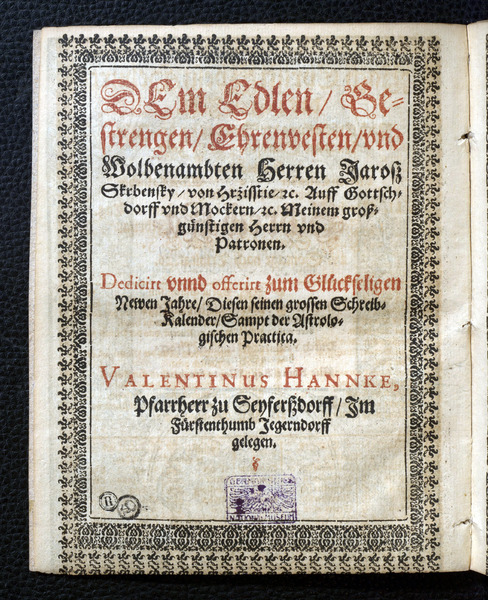 DEm Edlen/ Ge-
strengen/ Ehrenvesten/ vnd
Wolbenambten Herren Jaroß
Skrbensky/ von Hrzisstie/ ꝛc. Auff Gottsch-
dorff vnd Mockern/ ꝛc. Meinem groß-
günstigen Herrn vnd
Patronen.
Dedicirt vnnd offerirt zum Glückseligen
Newen Jahre/ Diesen seinen grossen Schreib-
Kalender/ Sampt der Astrolo-
gischen Practica.
VALENTINUS HANNKE,
Pfarrherr zu Seyferßdorff/ Im
Fürstenthumb Jegerndorff
gelegen.